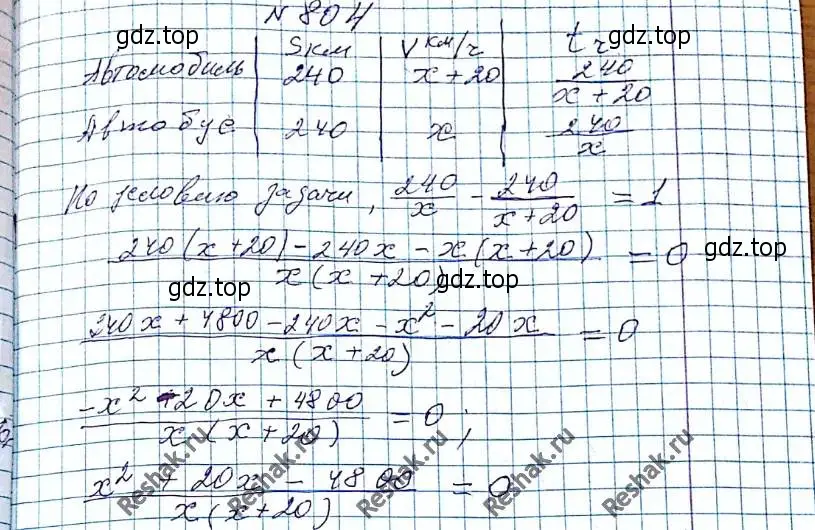 № 804
gdz.top gdz.top
Sкм | V км/ч | t ч
Автомобиль | 240 | x + 20 | 240/(x + 20)
Автобус | 240 | x | 240/x
По условию задачи, 240/x - 240/(x+20) = 1
(240(x+20) - 240x - x(x+20))/(x(x+20)) = 0 gdz.top
gdz.top
(240x + 4800 - 240x - x² - 20x)/(x(x+20)) = 0
(-x² - 20x + 4800)/(x(x+20)) = 0;
(x² + 20x - 4800)/(x(x+20)) = 0
Reshak.ru Reshak.ru Reshak.ru Reshak.ru